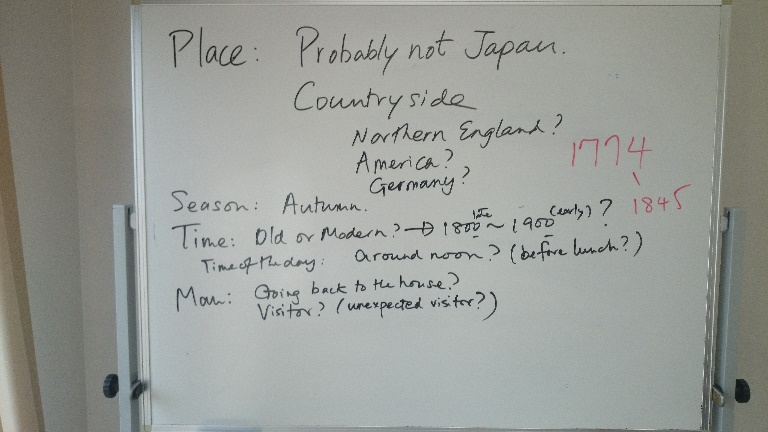 Place: Probably not Japan.
Countryside
Northern England?
America?
Germany?
1774
\
1845
Season: Autumn.
Time: Old or Modern? → 1800 late ~ 1900 (early) ?
Time of the day: around noon? (before lunch?)
Man: Going back to the house?
Visitor? (unexpected visitor?)